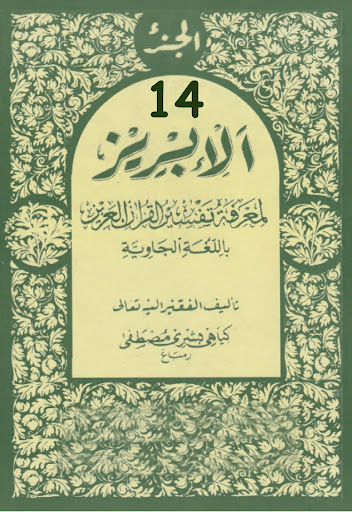 الجزء
14
الإبريز
لمعرفة تفسير القرآن العزيز
باللغة الجاوية
تأليف الفقير اليه تعالى
كياهى بشرى مصطفى
رمباغ